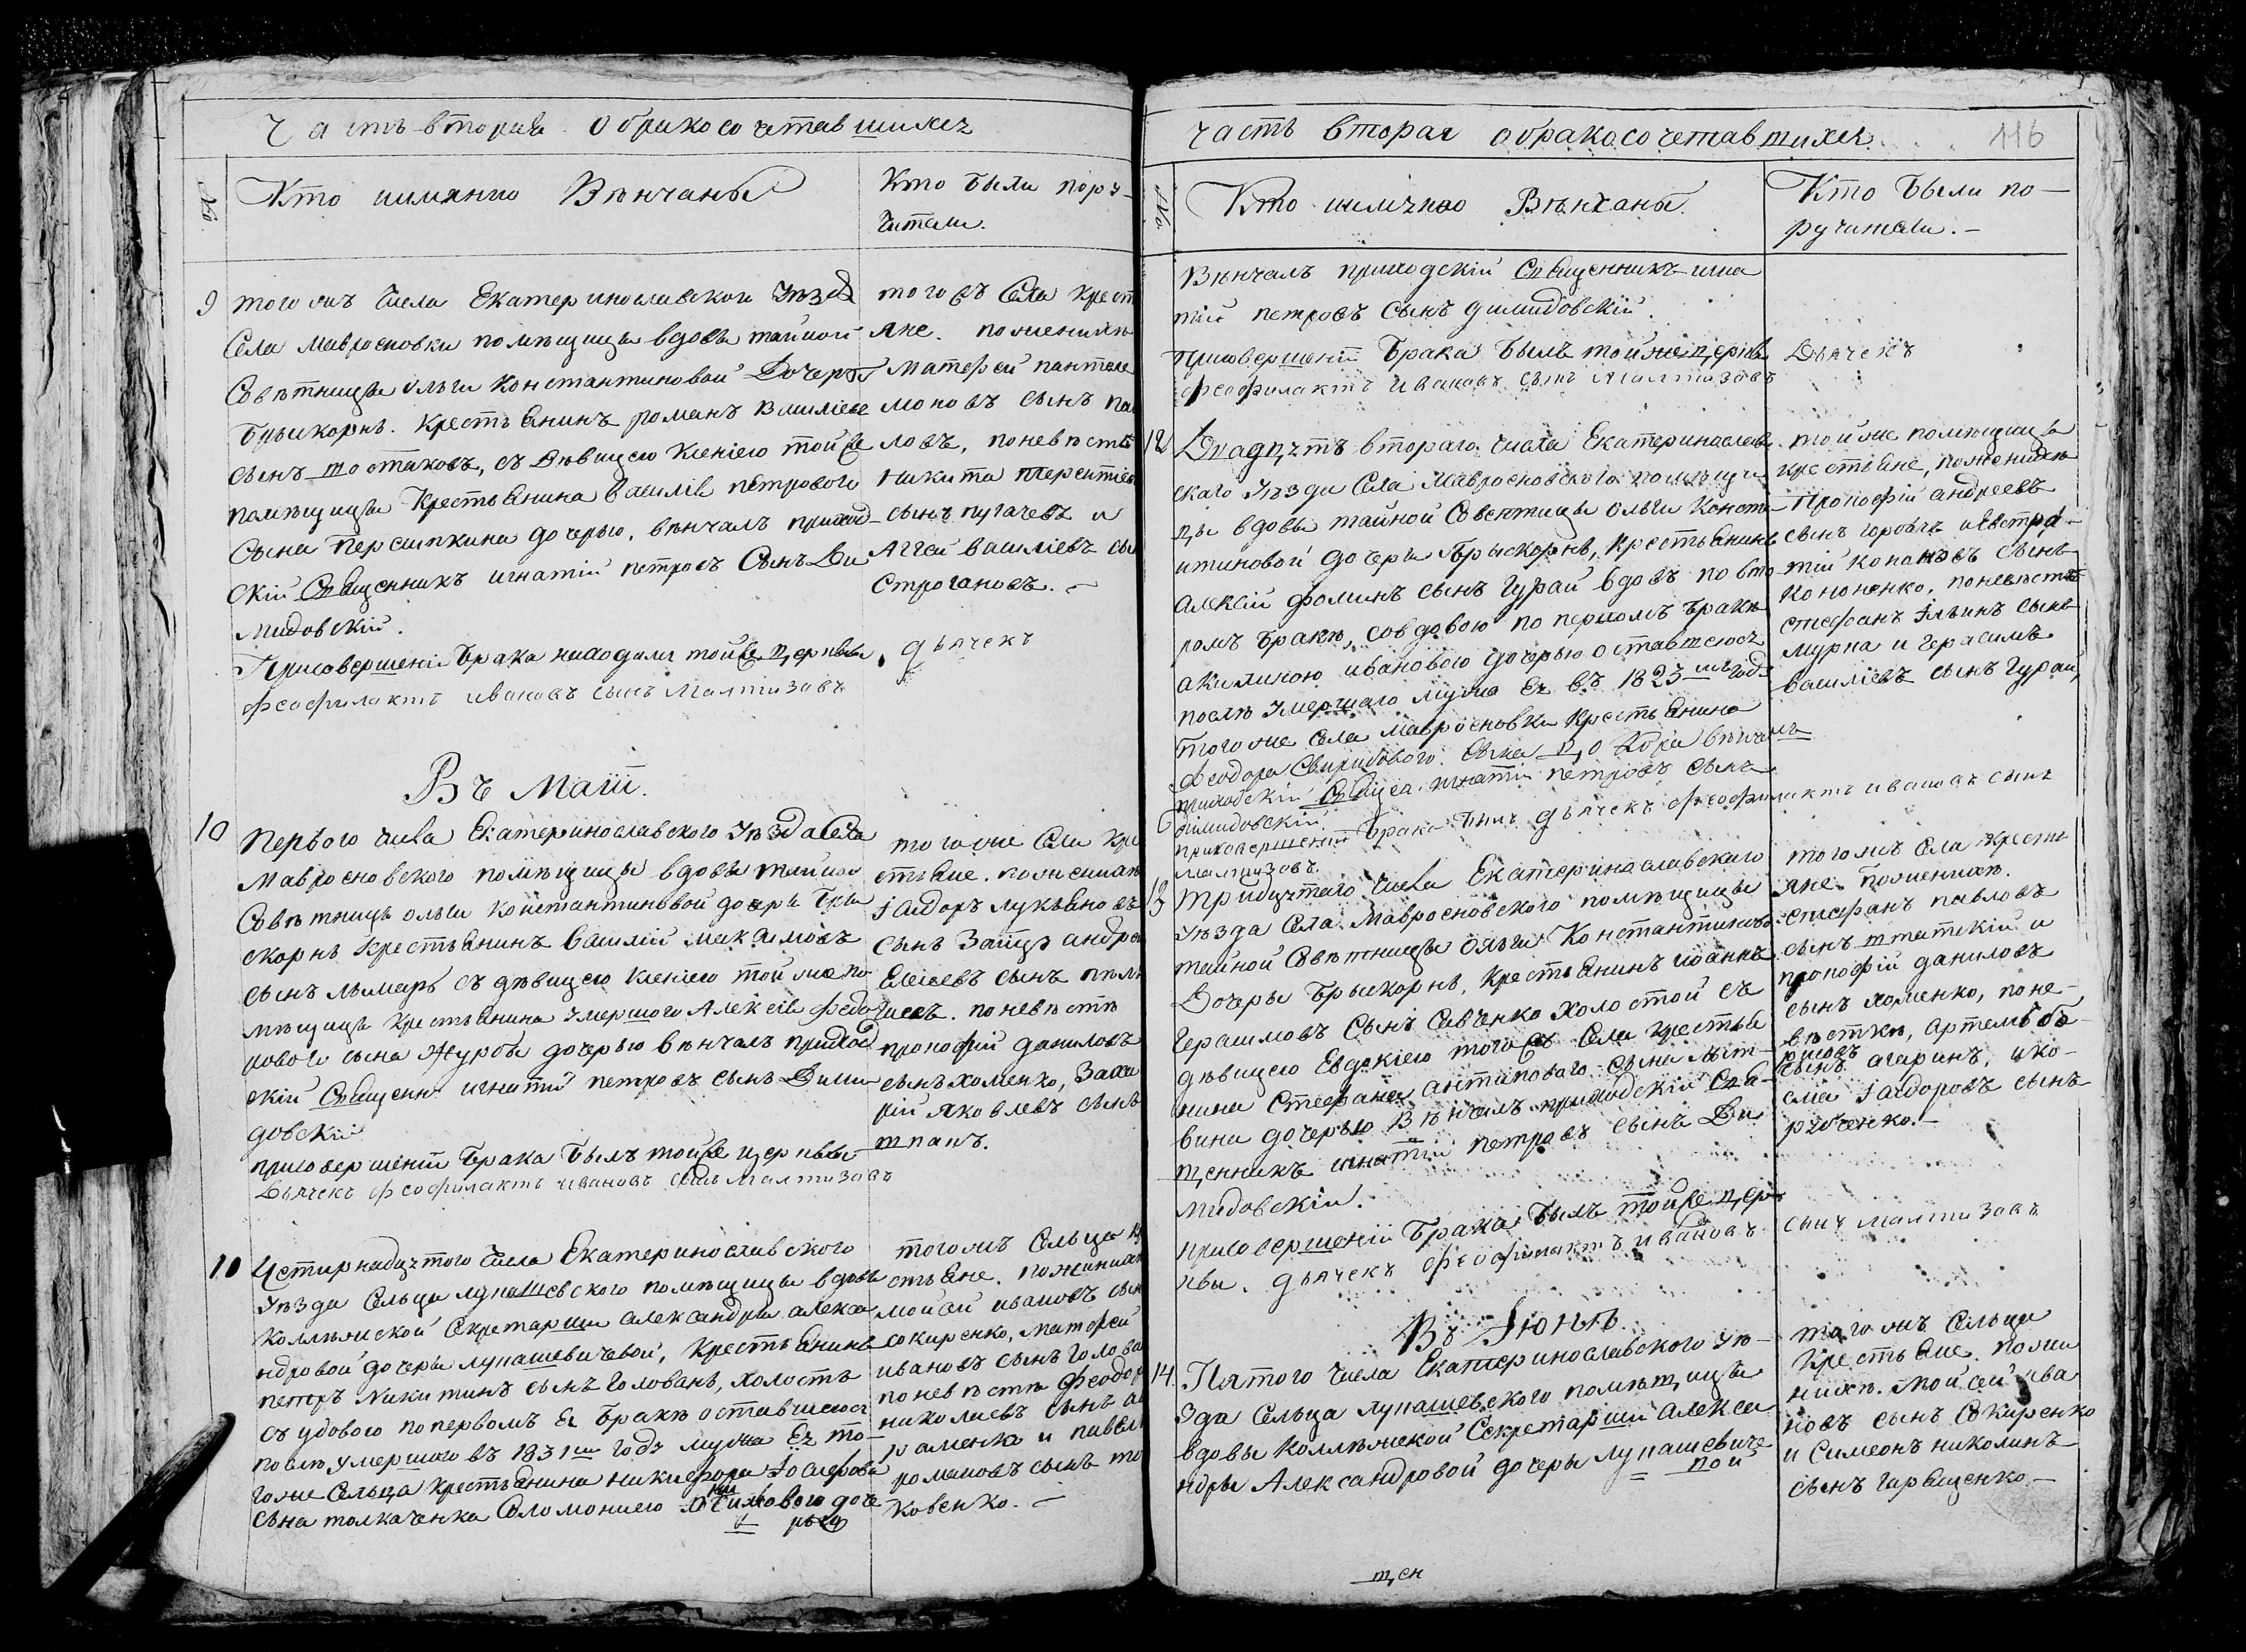 Часть вторая о бракосочетавшихся
№
Кто имянно Венчаны
Кто были пору-
чители.
9
того жъ Числа Екатеринославскои Уезда
Села мавросновки помещицы вдовы тайнои
Советницы ольги константиновой Дочеры
брыскорнь. Крестьянинъ романъ Василиевъ
сынъ шостаковъ, съ девицею Ксениею тойже
помещицы Крестьянина василия петрового
сына Персипкина дочерью, венчалъ приход-
скій Священникъ игнатій петровъ Сынъ Ди
мидовскій.
Присовершеніи брака находился тойже церквы дьячекъ
феофилактъ ивановъ сынъ Малтизовъ
того жъ Села крест
яне. по женихе
Матфей пантеле
моновъ сынъ
ловъ, по невесте
никита терентіев
сынъ пугачевъ и
Аггей василіевъ сы
строгановъ. —
Въ Маіи.
10
Первого числа Екатеринославского Уезда Села
Мавросновского помещицы вдовы тайнои
Советницы ольги константиновой дочери бры
скорнь крестьянинъ василій максимовъ
сынъ лымарь съ девицею ксениею той же по
мещицы крестьянина умершого Алексія федо
рового сына журбы дочерью венчалъ приход
скій Священ. игнатій петровъ сынъ Дими
довскій
присовершеніи брака былъ тойже церквы
Дьячекъ феофилактъ ивановъ сынъ Малтизовъ
того же Села кре
стьяне. по женихе
Исидоръ лукьяновъ
сынъ Заяцъ андрей
Елисеевъ сынъ
по невесте
прокофій даниловъ
сынъ хоменко, Заха
рій яковлевъ сынъ
шпанъ.
10
Четирнадцятого Числа Екатеринославского
Уезда Сельца лукашевского помещицы вдовы
Коллежской Секретарши александры алекса
ндровой дочеры лукашевичевой, крестьянинъ
петръ Никитинъ сынъ Голованъ, холостъ
съ удовою по первомъ Ея браке оставшеюся
после умершого въ 1831м годе мужа Ея то-
гоже Сельца крестьянина никифора Іосифова
сына толкаченка Соломониею дочe
рью
того жъ Сельца кр
стьяне. по женихе
мойсій ивановъ сын
сокиренко, матфей
ивановъ сынъ голова
по невесте феодор
николаевъ сынъ
раменко и павелъ
романовъ сынъ
ковенко. —
часть вторая о бракосочетавшихся
116
№
Кто имяенно Венчаны.
Кто были по-
ручители. —
Венчалъ приходскій Священникъ игна
тій петровъ сынъ димидовскій.
присовершеніи брака былъ тойже церквы Дьячекъ
феофилактъ ивановъ сынъ Малтизовъ
12
Двадцять второго числа Екатеринослав
скаго Уезда Села Мавросновского помещи
цы вдовы тайной Советницы ольги Конста
нтиновой дочери брыскорнь, крестьянинъ
алексій фоминъ сынъ Гурай вдовъ по вто
ромъ браке, со вдовою по первомъ браке
акилиною ивановою дочерью оставшеюся
после умершаго мужа Ея въ 1823мъ годе
того же села мавросновки крестьянина
феодора Свиридового сына венчалъ
приходскій Священ. игнатій петровъ сынъ
димидовскій.
присовершеніи брака былъ дьячекъ феофилактъ ивановъ сынъ
Малтизовъ.
той же помещицы
крестьяне, по женихе
Прокофій андреевъ
сынъ горбачъ и Евстра-
тій кононовъ сынъ
кононенко, по невесте
стефанъ Ильинъ сынъ
мурка и герасимъ
василіевъ сынъ гурай,
13
тридцятого числа Екатеринославского
Уезда Села Мавросновского помещицы
тайной Советницы ольги Константиново
Дочеры брыскорнь, крестьянинъ иоаннъ
Герасимовъ Сынъ Савченко холостой съ
девицею Евдокіею тогожъ Села крестья
нина Стефана антипового Сына Лит-
вина дочерью Венчалъ приходскій Свя-
щенникъ игнатій петровъ сынъ Ди
мидовскій.
присовершеніи брака былъ тойже цер-
квы. дьячекъ феофилактъ ивановъ сынъ Малтизовъ
тогожъ Села крести
яне. по женихе.
стефанъ павловъ
сынъ шпатскій и
прокофій даниловъ
сынъ хоменко, по не-
вестке, артемъ бо-
рисовъ
сынъ агаринъ, и ко-
сма Ісидоровъ сынъ
рябченко. —
Въ Іюнь
14.
Пятого числа Екатеринославского Уе-
зда Сельца лукашевского помещицы
вдовы Коллежской Секретарши Алекса
ндры Александровой дочеры лукашевиче
вой
того жъ Сельца
крестьяне. по же
нихе. мойсей ива
новъ сынъ Сокиренко
и Симеонъ николинъ
сынъ гаращенко. —
щен